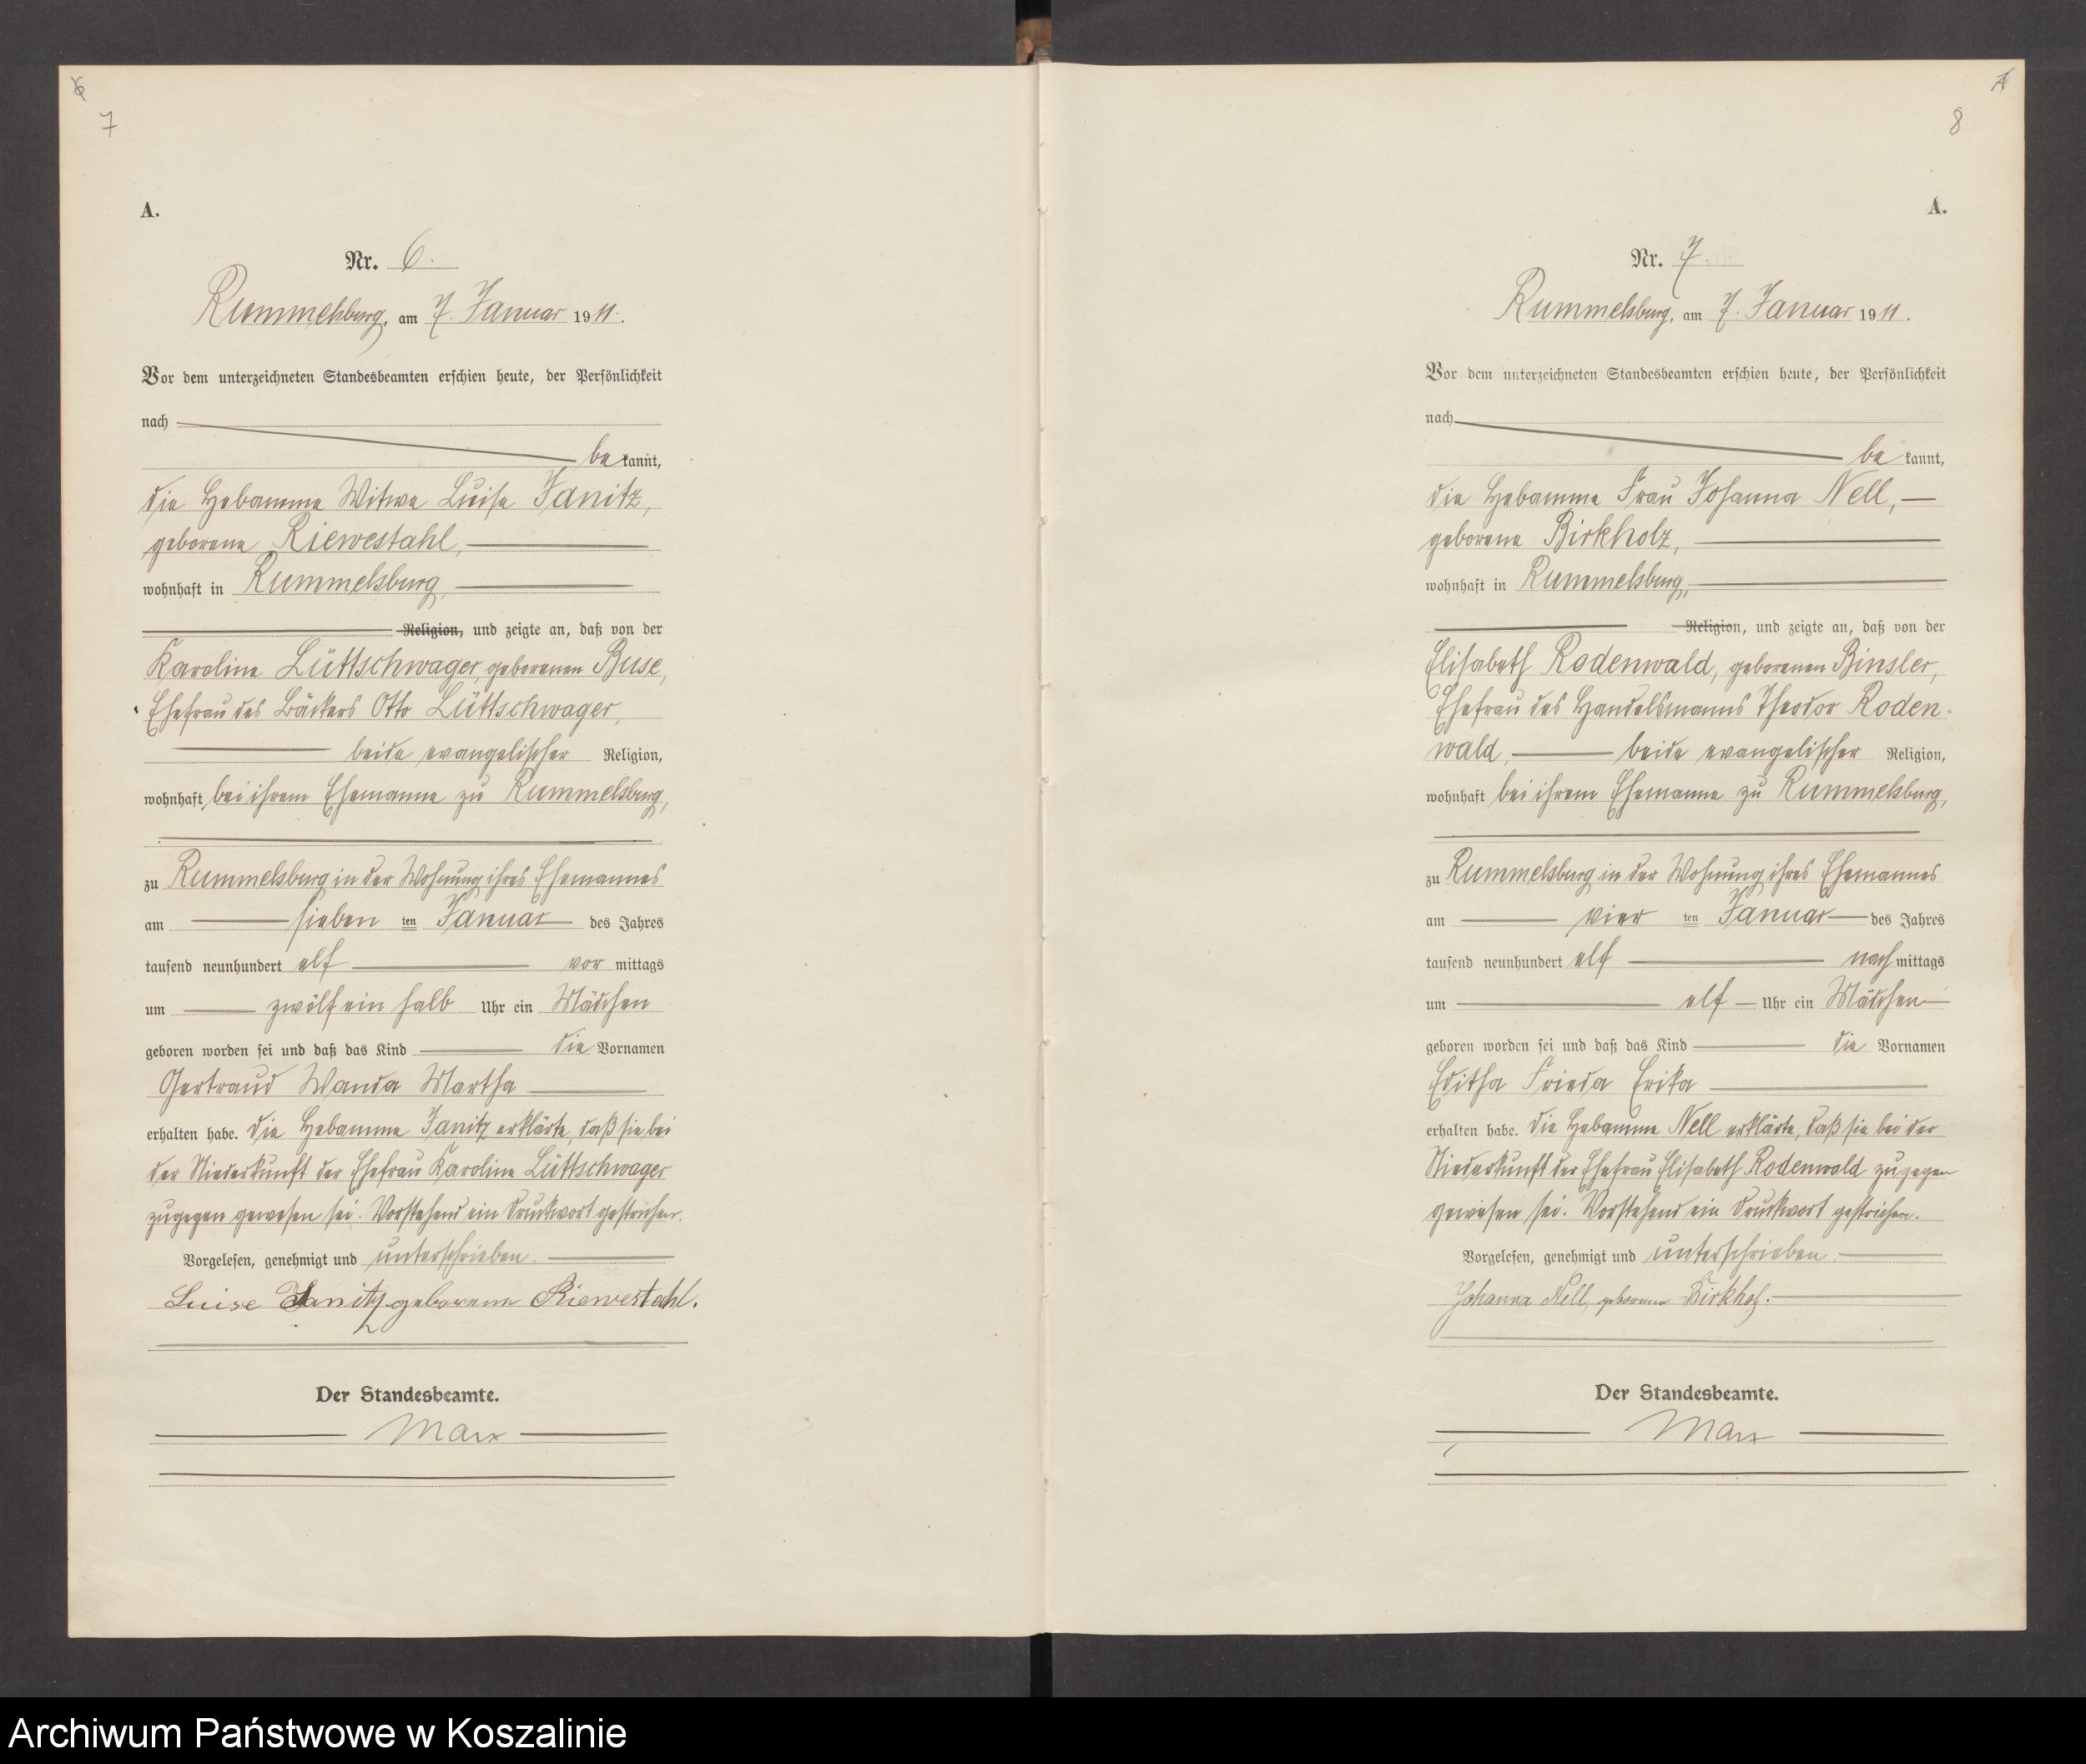 7
A.
Nr. 6.
Rummelsburg, am 7. Januar 1911.
Vor dem unterzeichneten Standesbeamten erschien heute, der Persönlichkeit
nach
be kannt,
die Hebamme Witwe Luise Janitz,
geborene Riewestahl,
wohnhaft in Rummelsburg,
Religion, und zeigte an, daß von der
Karoline Lüttschwager, geborenen Buse,
Ehefrau des Bäckers Otto Lüttschwager,
beide evangelischer Religion,
wohnhaft bei ihrem Ehemanne zu Rummelsburg,
zu Rummelsburg in der Wohnung ihres Ehemannes
am sieben ten Januar des Jahres
tausend neunhundert elf vor mittags
um zwölf ein halb Uhr ein Mädchen
geboren worden sei und daß das Kind die Vornamen
Gertraud Wanda Martha
erhalten habe. Die Hebamme Janitz erklärte, daß sie bei
der Niederkunft der Ehefrau Karoline Lüttschwager
zugegen gewesen sei. Vorstehend ein Druckwort gestrichen.
Vorgelesen, genehmigt und unterschrieben.
Luise Janitz geborene Riewestahl.
Der Standesbeamte.
Marx
8
A.
Nr. 7.
Rummelsburg, am 7. Januar 1911.
Vor dem unterzeichneten Standesbeamten erschien heute, der Persönlichkeit
nach
be kannt,
die Hebamme Frau Johanna Nell,
geborene Birkholz,
wohnhaft in Rummelsburg,
Religion, und zeigte an, daß von der
Elisabeth Rodenwald, geborenen Binsler,
Ehefrau des Handelsmanns Theodor Roden-
wald, beide evangelischer Religion,
wohnhaft bei ihrem Ehemanne zu Rummelsburg,
zu Rummelsburg in der Wohnung ihres Ehemannes
am vier ten Januar des Jahres
tausend neunhundert elf nach mittags
um elf Uhr ein Mädchen
geboren worden sei und daß das Kind die Vornamen
Editha Frieda Erika
erhalten habe. Die Hebamme Nell erklärte, daß sie bei der
Niederkunft der Ehefrau Elisabeth Rodenwald zugegen
gewesen sei. Vorstehend ein Druckwort gestrichen.
Vorgelesen, genehmigt und unterschrieben.
Johanna Nell, geborene Birkholz.
Der Standesbeamte.
Marx
Archiwum Państwowe w Koszalinie